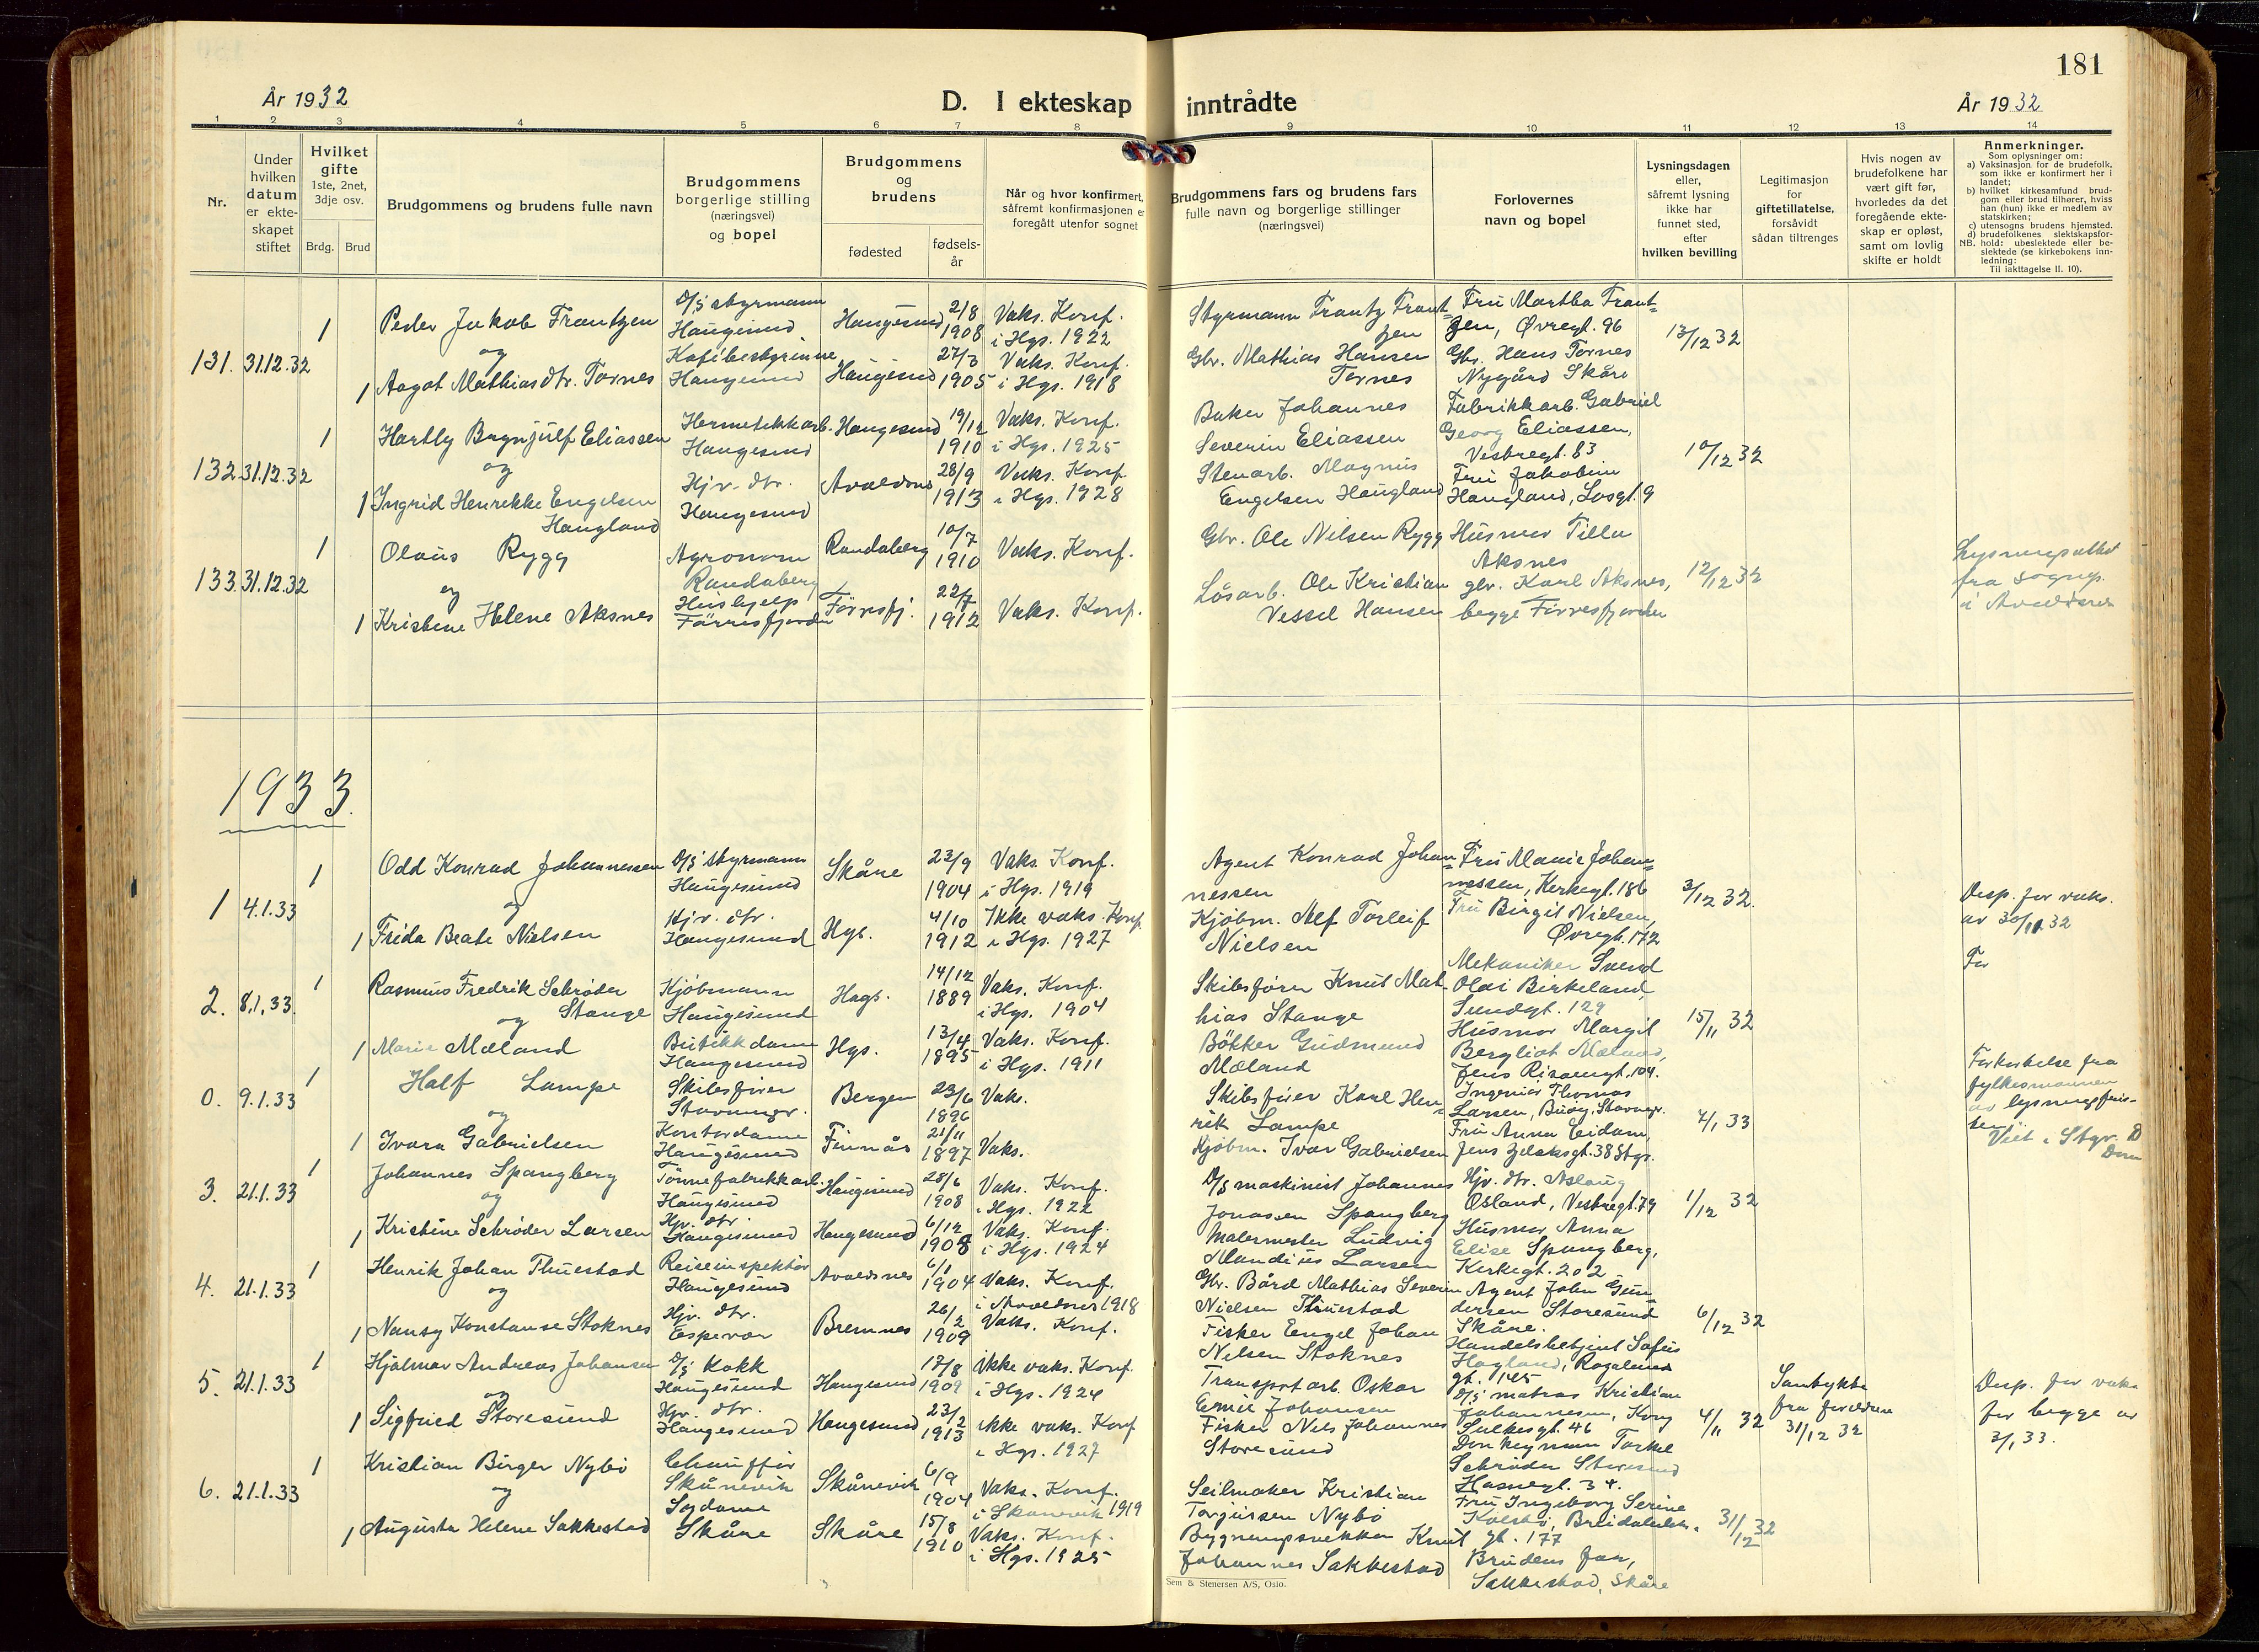 181
År 1932
D. I ekteskap inntrådte
År 1932
1 2 3 4 5 6 7 8 9 10 11 12 13 14
Nr.
Under hvilken datum er ekteskapet stiftet
Hvilket gifte 1ste, 2net, 3dje osv.
Brdg. Brud
Brudgommens og brudens fulle navn
Brudgommens borgerlige stilling (næringsvei) og bopel
Brudgommens og brudens
fødested
fødselsår
Når og hvor konfirmert, såfremt konfirmasjonen er foregått utenfor sognet
Brudgommens fars og brudens fars fulle navn og borgerlige stillinger (næringsvei)
Forlovernes navn og bopel
Lysningsdagen eller, såfremt lysning ikke har funnet sted, efter hvilken bevilling
Legitimasjon for giftetillatelse, forsåvidt sådan tiltrenges
Hvis nogen av brudefolkene har vært gift før, hvorledes da det foregående ekteskap er opløst, samt om lovlig skifte er holdt
Anmerkninger.
Som oplysninger om:
a) Vaksinasjon for de brudefolk, som ikke er konfirmert her i landet;
b) hvilket kirkesamfund brudgom eller brud tilhører, hviss han (hun) ikke er medlem av statskirken;
c) utensogns brudens hjemsted.
d) brudefolkenes slektskapsforhold: ubeslektede eller beslektede (se kirkebokens innledning:
NB.
Til iakttagelse II. 10).
131. 31.12.32
1 Peder Jakob Frantzen
og
1 Aagot Mathiasdtr. Tornes
D/s styrmann
Haugesund
Kafébestyrinne
Haugesund
Haugesund
2/8 1908
Haugesund
27/3 1905
Vaks. Konf.
i Hgs. 1922
Vaks. Konf.
i Hgs. 1918
Styrmann Frantz Frantzen
Gbr. Mathias Hansen
Tornes
Fru Martha Frantzen, Øvregt. 96
Gbr. Hans Tornes
Nygård Skåre
13/12 32
132 31.12.32
1 Hartly Brynjulf Eliassen
og
1 Ingrid Henrikke Engelsen
Haugland
Hermetikkarb.
Haugesund
Hjv. dtr.
Haugesund
Haugesund
19/12 1910
Avaldsnes
28/9 1913
Vaks. Konf.
i Hgs. 1925
Vaks. Konf.
i Hgs. 1928
Baker Johannes
Severin Eliassen
Stenarb. Magnus
Engelsen Haugland
Fabrikkarb. Gabriel
Georg Eliassen,
Vestregt. 83
Fru Jakobine
Haugland, Losgt. 9
10/12 32
133 31.12.32
1 Olaus Rygg
og
1 Kristine Helene Aksnes
Agronom
Randaberg
Hushjelp
Førresfjorden
Randaberg
10/7 1910
Førresfj.
22/7 1912
Vaks. Konf.
Vaks. Konf.
Gbr. Ole Nilsen Rygg
Løsarb. Ole Kristian
Vessel Hansen
Husmor Tilla
Aksnes
gbr. Karl Aksnes,
begge Førresfjorden
12/12 32
Lysningsattest
fra sognep.
i Avaldsnes
1933.
1 4.1.33
1 Odd Konrad Johannessen
og
1 Frida Beate Nielsen
D/s styrmann
Haugesund
Hjv. dtr.
Haugesund
Skåre
23/9 1904
Hgs.
4/10 1912
Vaks. Konf.
i Hgs. 1919
Ikke vaks. Konf.
i Hgs. 1927
Agent Konrad Johannessen
Kjøbm. Alf Torleif
Nielsen
Fru Marie Johannessen, Kirkegt. 186
Fru Birgit Nielsen,
Øvregt. 172
3/12 32.
Desp. for vaks.
av 30/11 32
2. 8.1.33.
1 Rasmus Fredrik Schrøder
og Stange
1 Marie Mæland
Kjøbmann
Haugesund
Butikkdame
Haugesund
Haugs.
14/12 1889
Hgs.
13/4 1895
Vaks. Konf.
i Hgs. 1904
Vaks. Konf.
i Hgs. 1911
Skibsfører Knut Mathias Stange
Bøkker Gudmund
Mæland
Mekaniker Svend
Olai Birkeland,
Sundgt. 129
Husmor Margit
Bergliot Mæland,
Jens Risøengt. 104.
15/11 32
For
0. 9.1.33
1 Half Lampe
og
1 Ivara Gabrielsen
Skibsfører
Stavanger.
Kontordame
Haugesund
Bergen
23/6 1896
Finnås
21/11 1897
Vaks.
Vaks.
Skibsfører Karl Henrik Lampe
Kjøbm. Ivar Gabrielsen
Ingeniør Thomas
Larsen, Buøy, Stavngr.
Fru Anna Eidam,
Jens Zetlitzgt. 38 Stgr.
4/1 33
fra
fylkesmannen
av lysningsfristen
Viet i Stgr. D
Dom
3. 21.1.33
1 Johannes Spangberg
og
1 Kristine Schrøder Larsen
Tønnefabrikkarb.
Haugesund
Hjv. dtr.
Haugesund
Haugesund
28/6 1908
Haugesund
6/12 1908
Vaks. Konf.
i Hgs. 1922
Vaks. Konf.
i Hgs. 1924
D/s maskinist Johannes
Jonassen Spangberg
Malermester Ludvig
Mandius Larsen
Hjv. dtr. Aslaug
Osland, Vestregt. 79
Husmor Anna
Elise Spangberg,
Kirkegt. 202
1/12 32
4. 21.1.33
1 Henrik Johan Thuestad
og
1 Nansy Konstanse Stoknes
Reiseinspektør
Haugesund
Hjv. dtr.
Espevær
Avaldsnes
6/1 1904
Bremnes
26/2 1909
Vaks. Konf.
i Avaldsnes 1918
Vaks. Konf.
Gbr. Bård Mathias Severin
Nielsen Thuestad
Fisker Engel Johan
Nilsen Stoknes
Agent John Gundersen Storesund
Skåre.
Handelsbetjent Sofus
Hagland, Rogalands
gt. 145
6/12 32
5. 21.1.33
1 Hjalmar Andreas Johansen
og
1 Sigfried Storesund
D/s kokk
Haugesund
Hjv. dtr.
Haugesund
Haugesund
17/8 1909
Haugesund
23/2 1913
ikke vaks. Konf.
i Hgs. 1924
ikke vaks. Konf
i Hgs. 1927
Transportarb. Oskar
Emil Johansen
Fisker Nils Johannes
Storesund
D/s matros Kristian
Johannesen, Kong
Sulkesgt. 46
Donkeyman Torkel
Schrøder Storesund
Hasnegt. 34.
4/11 32
Samtykke
fra foreldrene
31/12 32
Desp. for vaks
for begge av
3/1 33.
6. 21.1.33
1 Kristian Birger Nybø
og
1 Augusta Helene Sakkestad
Chauffør
Skånevik
Sydame
Skåre
Skånevik
6/9 1904
Skåre
15/8 1910
Vaks. Konf.
i Skånevik 1919
Vaks. Konf.
i Hgs. 1925
Seilmaker Kristian
Torjusen Nybø
Bygningssnekker Knut
Johannes Sakkestad
Fru Ingeborg Serine
Kolstø,
gt. 177
Brudens far,
Sakkestad, Skåre
31/12 32
Sem & Stenersen A/S, Oslo.